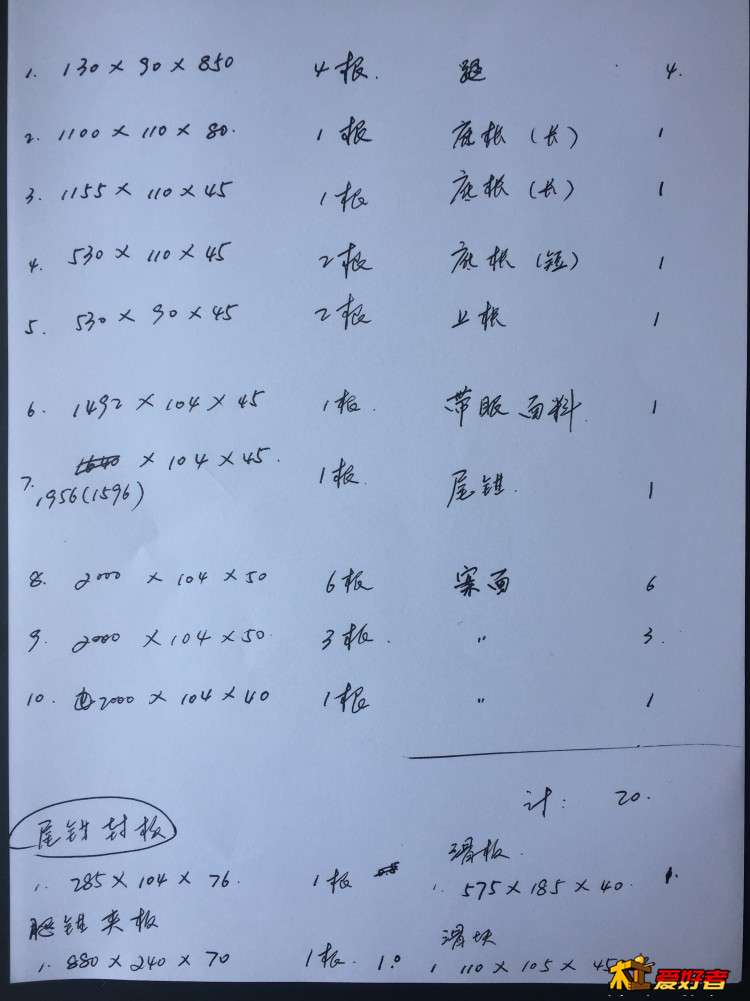 1. 130 × 90 × 850 4根. 腿 4.
2. 1100 × 110 × 80. 1根 底枨 (长) 1
3. 1155 × 110 × 45 1根 底枨 (长) 1
4. 530 × 110 × 45 2根 底枨 (短) 1
5. 530 × 90 × 45 2根 上枨 1
6. 1492 × 104 × 45 1根. 带眼面料 1
7. 1640 × 104 × 45. 1根. 尾钳. 1
1956(1596)
8. 2000 × 104 × 50 6根 案面 6
9. 2000 × 104 × 50. 3根. " 3.
10. 2000 × 104 × 40 1根 " 1
计: 20.
尾钳封板
滑板.
1. 285 × 104 × 76. 1根
1. 575 × 185 × 40. 1.
腿钳夹板
滑块
1. 880 × 240 × 70 1根. 1.
1 110 × 105 × 45
木工爱好者